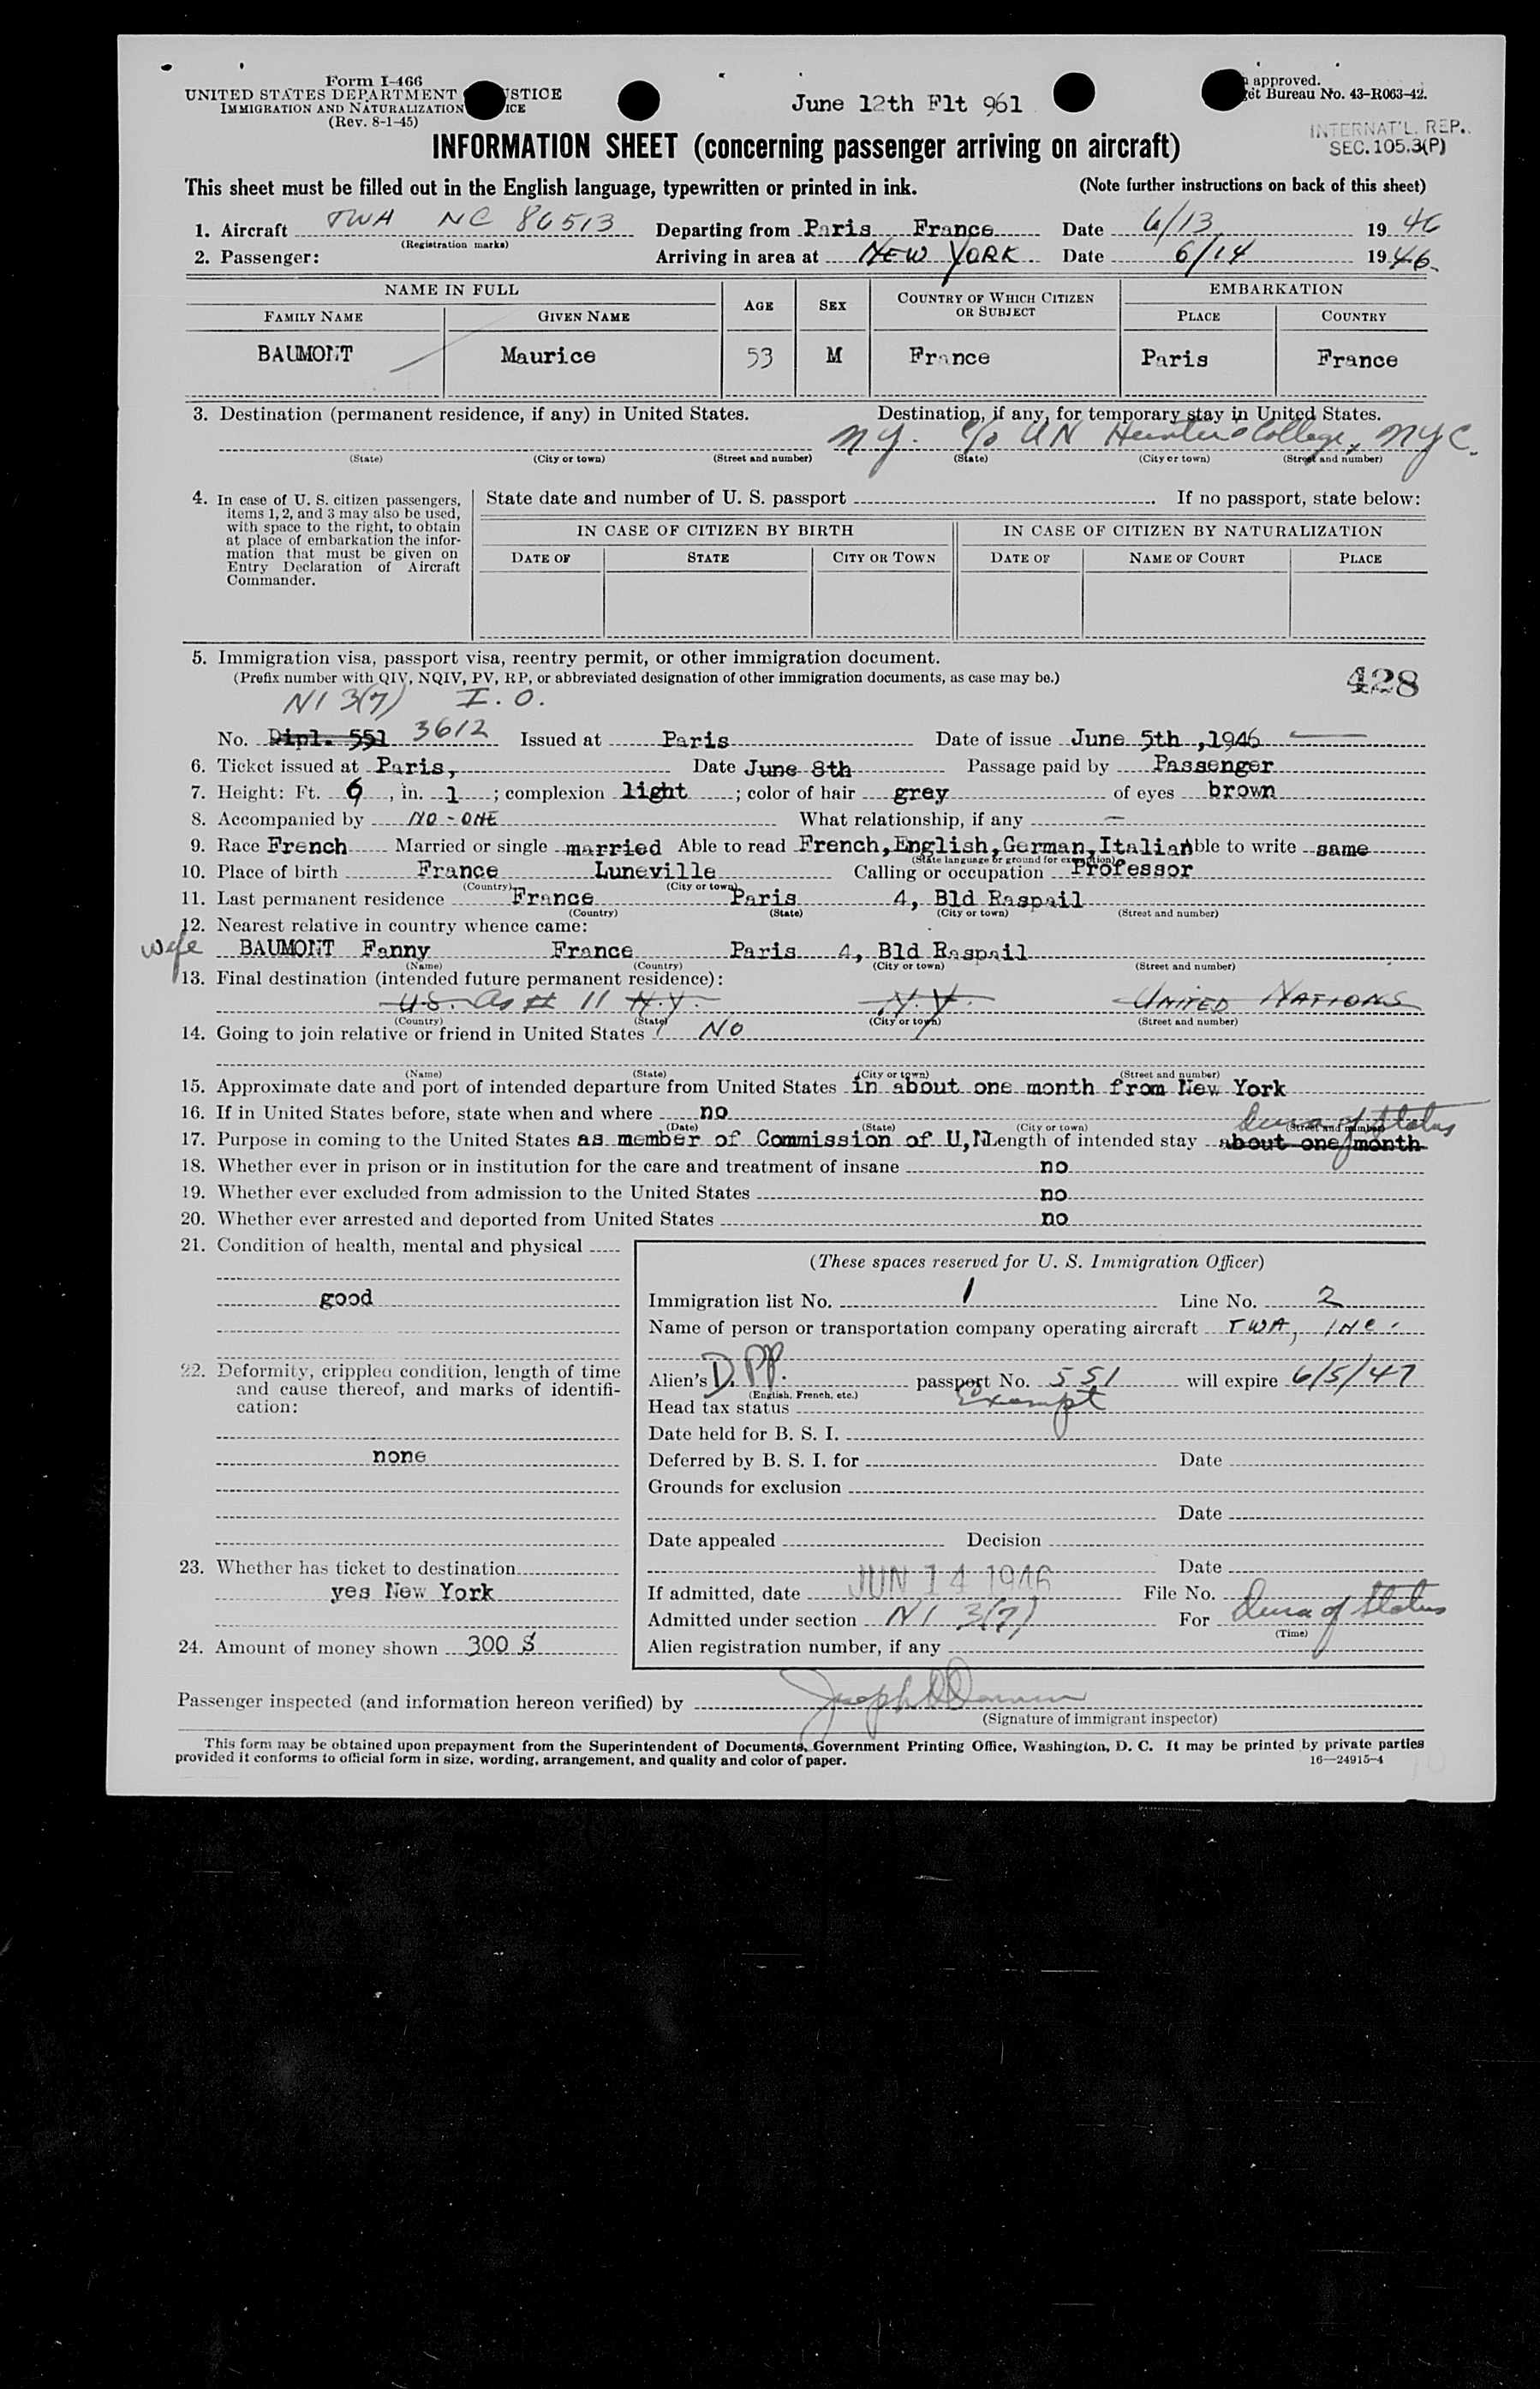 Form I-466
UNITED STATES DEPARTMENT STICE
IMMIGRATION AND NATURALIZATION ICE
(Rev. 8-1-45)
June 12th Flt 961
approved.
et Bureau No. 43-R063-42.
INTERNAT'L. REP.
SEC. 105.3(P)
INFORMATION SHEET (concerning passenger arriving on aircraft)
This sheet must be filled out in the English language, typewritten or printed in ink. (Note further instructions on back of this sheet)
1. Aircraft TWA NC 86513 Departing from Paris France Date 6/13 1946
(Registration marks)
2. Passenger: Arriving in area at NEW YORK Date 6/14 1946.
NAME IN FULL AGE SEX COUNTRY OF WHICH CITIZEN OR SUBJECT EMBARKATION
FAMILY NAME GIVEN NAME PLACE COUNTRY
BAUMONT Maurice 53 M France Paris France
3. Destination (permanent residence, if any) in United States. Destination, if any, for temporary stay in United States.
NY. c/o UN Hunter College, NYC.
(State) (City or town) (Street and number) (State) (City or town) (Street and number)
4. In case of U. S. citizen passengers, items 1, 2, and 3 may also be used, with space to the right, to obtain at place of embarkation the information that must be given on Entry Declaration of Aircraft Commander.
State date and number of U. S. passport . If no passport, state below:
IN CASE OF CITIZEN BY BIRTH IN CASE OF CITIZEN BY NATURALIZATION
DATE OF STATE CITY OR TOWN DATE OF NAME OF COURT PLACE
5. Immigration visa, passport visa, reentry permit, or other immigration document.
(Prefix number with QIV, NQIV, PV, RP, or abbreviated designation of other immigration documents, as case may be.)
428
NI 3(7) I. O.
No. Dipl. 551 3612 Issued at Paris Date of issue June 5th ,1946
6. Ticket issued at Paris, Date June 8th Passage paid by Passenger
7. Height: Ft. 6 , in. 1 ; complexion light ; color of hair grey of eyes brown
8. Accompanied by NO-ONE What relationship, if any —
9. Race French Married or single married Able to read French,English,German,Italian Able to write same
(State language or ground for exemption)
10. Place of birth France Luneville Calling or occupation Professor
(Country) (City or town)
11. Last permanent residence France Paris 4, Bld Raspail
(Country) (State) (City or town) (Street and number)
12. Nearest relative in country whence came:
wife BAUMONT Fanny France Paris 4, Bld Raspail
(Name) (Country) (City or town) (Street and number)
13. Final destination (intended future permanent residence):
U.S. As # 11 N.Y. N.Y. UNITED NATIONS
(Country) (State) (City or town) (Street and number)
14. Going to join relative or friend in United States NO
(Name) (State) (City or town) (Street and number)
15. Approximate date and port of intended departure from United States in about one month from New York
16. If in United States before, state when and where no
(Date) (State) (City or town) (Street and number)
Dura of Status
17. Purpose in coming to the United States as member of Commission of U,N Length of intended stay about one month
18. Whether ever in prison or in institution for the care and treatment of insane no
19. Whether ever excluded from admission to the United States no
20. Whether ever arrested and deported from United States no
21. Condition of health, mental and physical
good
22. Deformity, crippled condition, length of time and cause thereof, and marks of identification:
none
23. Whether has ticket to destination
yes New York
24. Amount of money shown 300 $
(These spaces reserved for U. S. Immigration Officer)
Immigration list No. 1 Line No. 2
Name of person or transportation company operating aircraft TWA, INC.
Alien's D. PP. passport No. 551 will expire 6/5/47
(English, French, etc.)
Head tax status Exempt
Date held for B. S. I.
Deferred by B. S. I. for Date
Grounds for exclusion
Date
Date appealed Decision
Date
If admitted, date JUN 14 1946 File No.
Admitted under section NI 3(7) For Dura of Status
(Time)
Alien registration number, if any
Passenger inspected (and information hereon verified) by
(Signature of immigrant inspector)
This form may be obtained upon prepayment from the Superintendent of Documents, Government Printing Office, Washington, D. C. It may be printed by private parties
provided it conforms to official form in size, wording, arrangement, and quality and color of paper.
16—24915-4